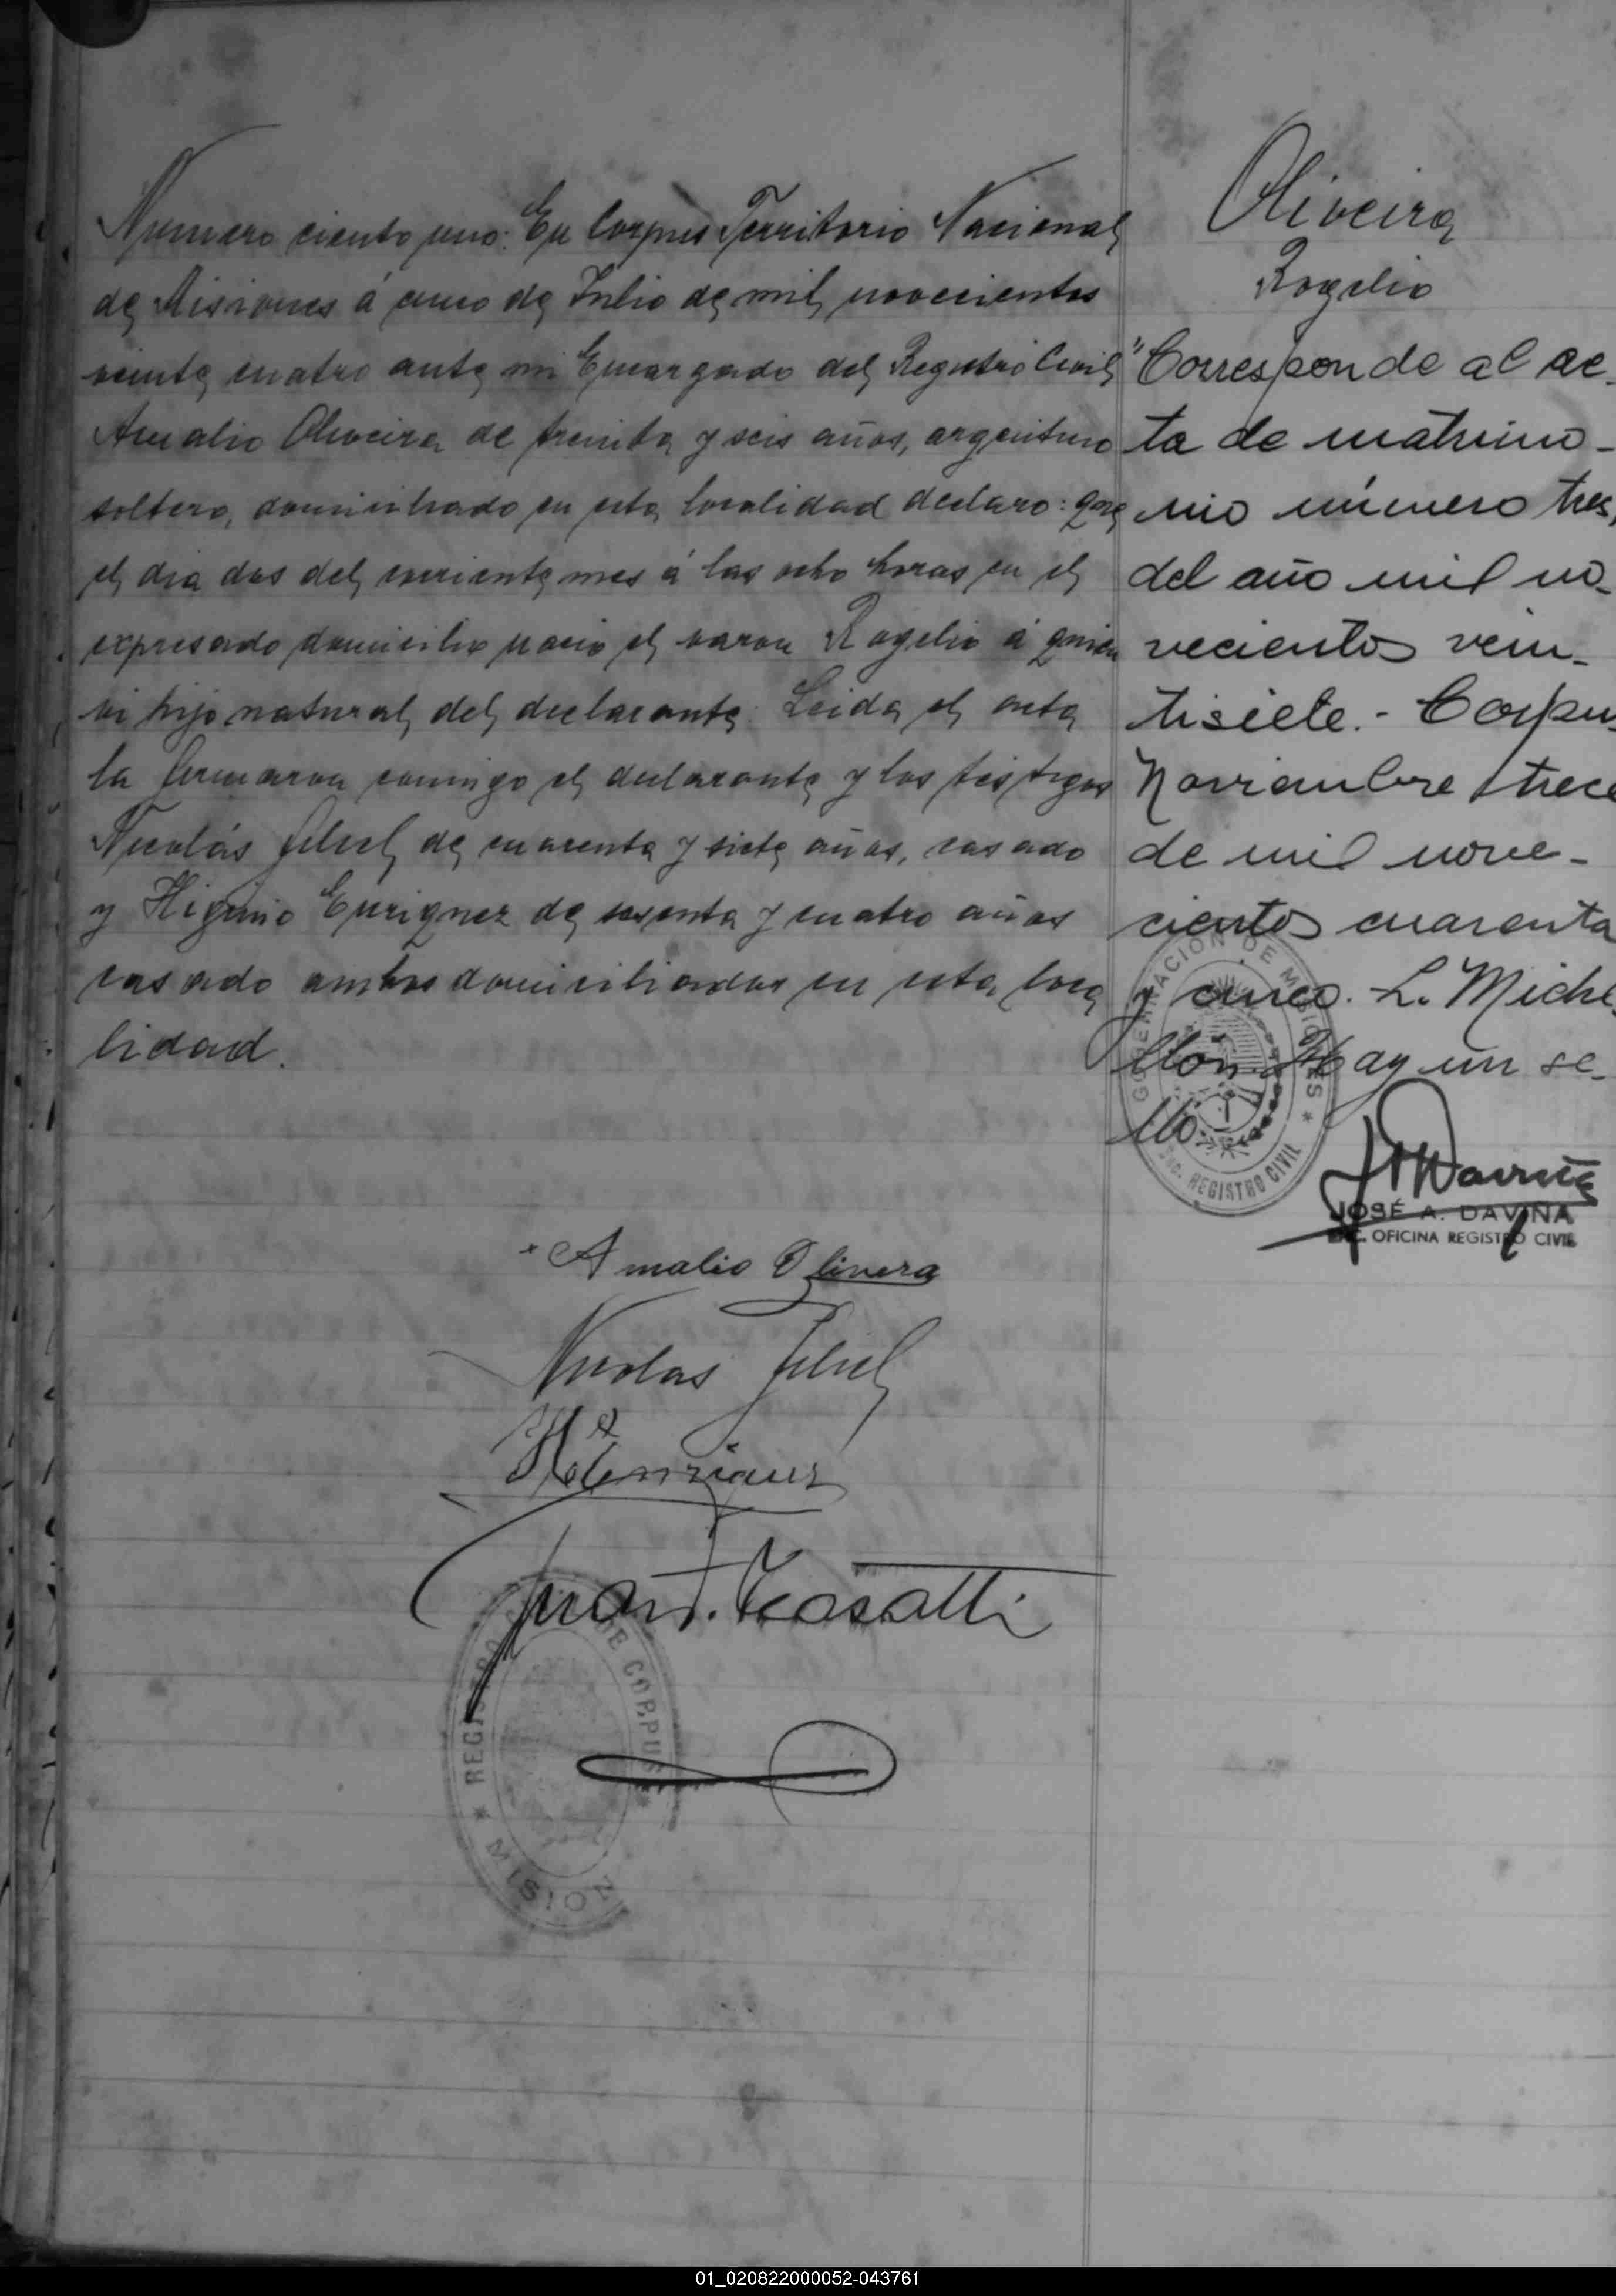 Numero ciento uno: En Corpus Territorio Nacional
de Misiones á cinco de Julio de mil novecientos
veinte cuatro ante mi Encargado del Registro Civil
Amalio Oliveira de treinta y seis años, argentino
soltero, domiciliado en esta localidad declaro: que
el dia dos del corriente mes á las ocho horas en el
expresado domicilio nacio el varon Rogelio á quien
vi hijo natural del declarante. Leida el acta
la firmaron conmigo el declarante y los testigos
Nicolás de cuarenta y siete años, casado
y Higinio Enriquez de sesenta y cuatro años
casado ambos domiciliados en esta loca
lidad.
Amalio Olivera
Nicolas
H Enriquez
Juan
REGISTRO DE CORPUS
MISION
Oliveira
Rogelio
"Corresponde al ac-
ta de matrimo-
nio número tres,
del año mil no-
vecientos vein-
tisiete.- Corpus
Noviembre trece
de mil nove-
cientos cuarenta
y cinco. L. Miche-
llón. Hay un se-
llo.
GOBERNACION DE MISIONES
ENC. REGISTRO CIVIL
JOSÉ A. DAVIÑA
ENC. OFICINA REGISTRO CIVIL
01_020822000052-043761